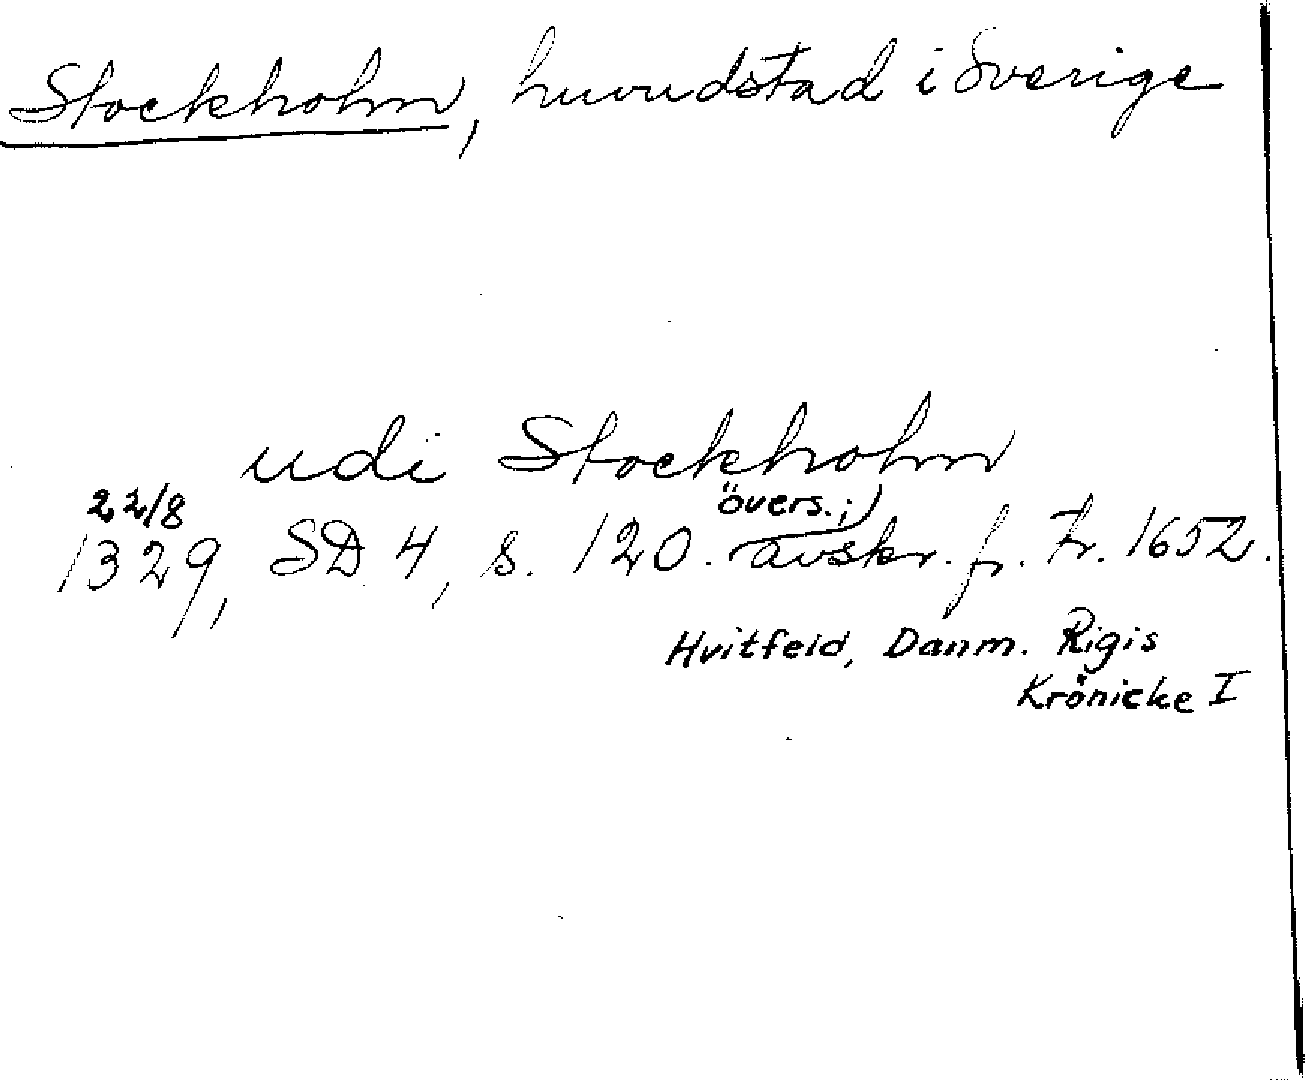 Stockholm, huvudstad i Sverige
udi Stockholm
22/8 övers.;
1329, SD 4, s. 120. avskr. fr. tr. 1652.
Hvitfeld, Danm. Rigis
Krönicke I